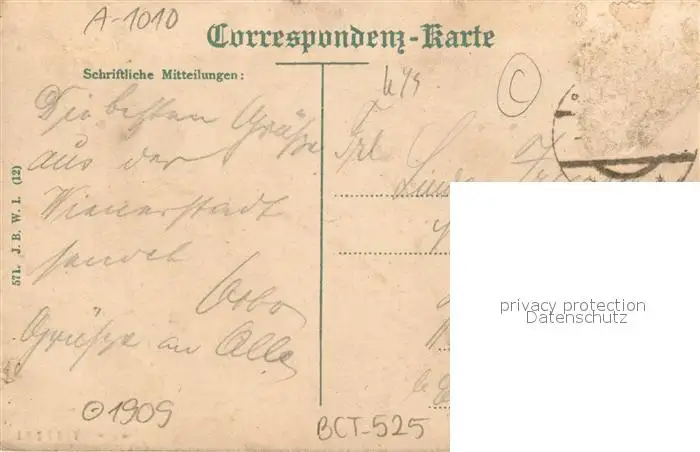 A-1010
Correspondenz-Karte
Schriftliche Mitteilungen:
k4s
C
Die besten Grüße
aus der
Wienerstadt
sendet
Otto
Grüsse an Alle
Frl
Linda
571. J. B. W. I. (12)
1909
BCT-525
privacy protection
Datenschutz